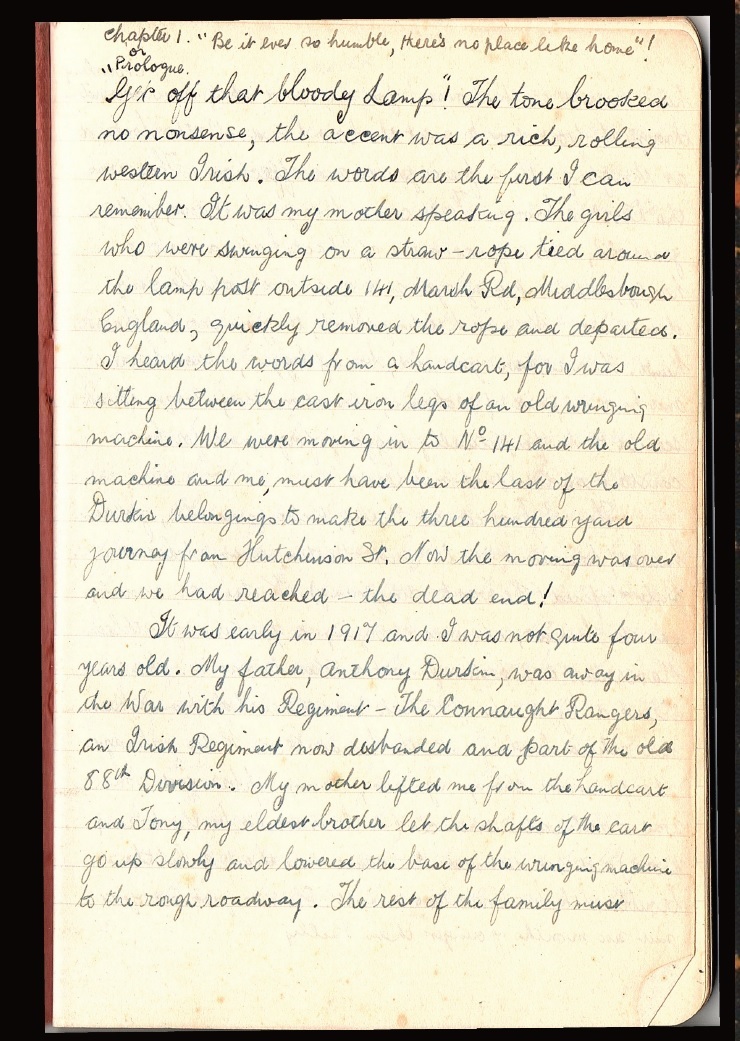 Chapter 1. "Be it ever so humble, there's no place like home"!
or
Prologue.
"Get off that bloody Lamp"! The tone brooked
no nonsense, the accent was a rich, rolling
western Irish. The words are the first I can
remember. It was my mother speaking. The girls
who were swinging on a straw-rope tied around
the lamp post outside 141, Marsh Rd, Middlesbough
England, quickly removed the rope and departed.
I heard the words from a handcart, for I was
sitting between the cast iron legs of an old wringing
machine. We were moving in to Nº 141 and the old
machine and me, must have been the last of the
Durkin belongings to make the three hundred yard
journey from Hutchinson St. Now the moving was over
and we had reached - the dead end!
It was early in 1917 and I was not quite four
years old. My father, Anthony Durkin, was away in
the War with his Regiment - The Connaught Rangers,
an Irish Regiment now disbanded and part of the old
88th Division. My mother lifted me from the handcart
and Tony, my eldest brother let the shafts of the cart
go up slowly and lowered the base of the wringing machine
to the rough roadway. The rest of the family must